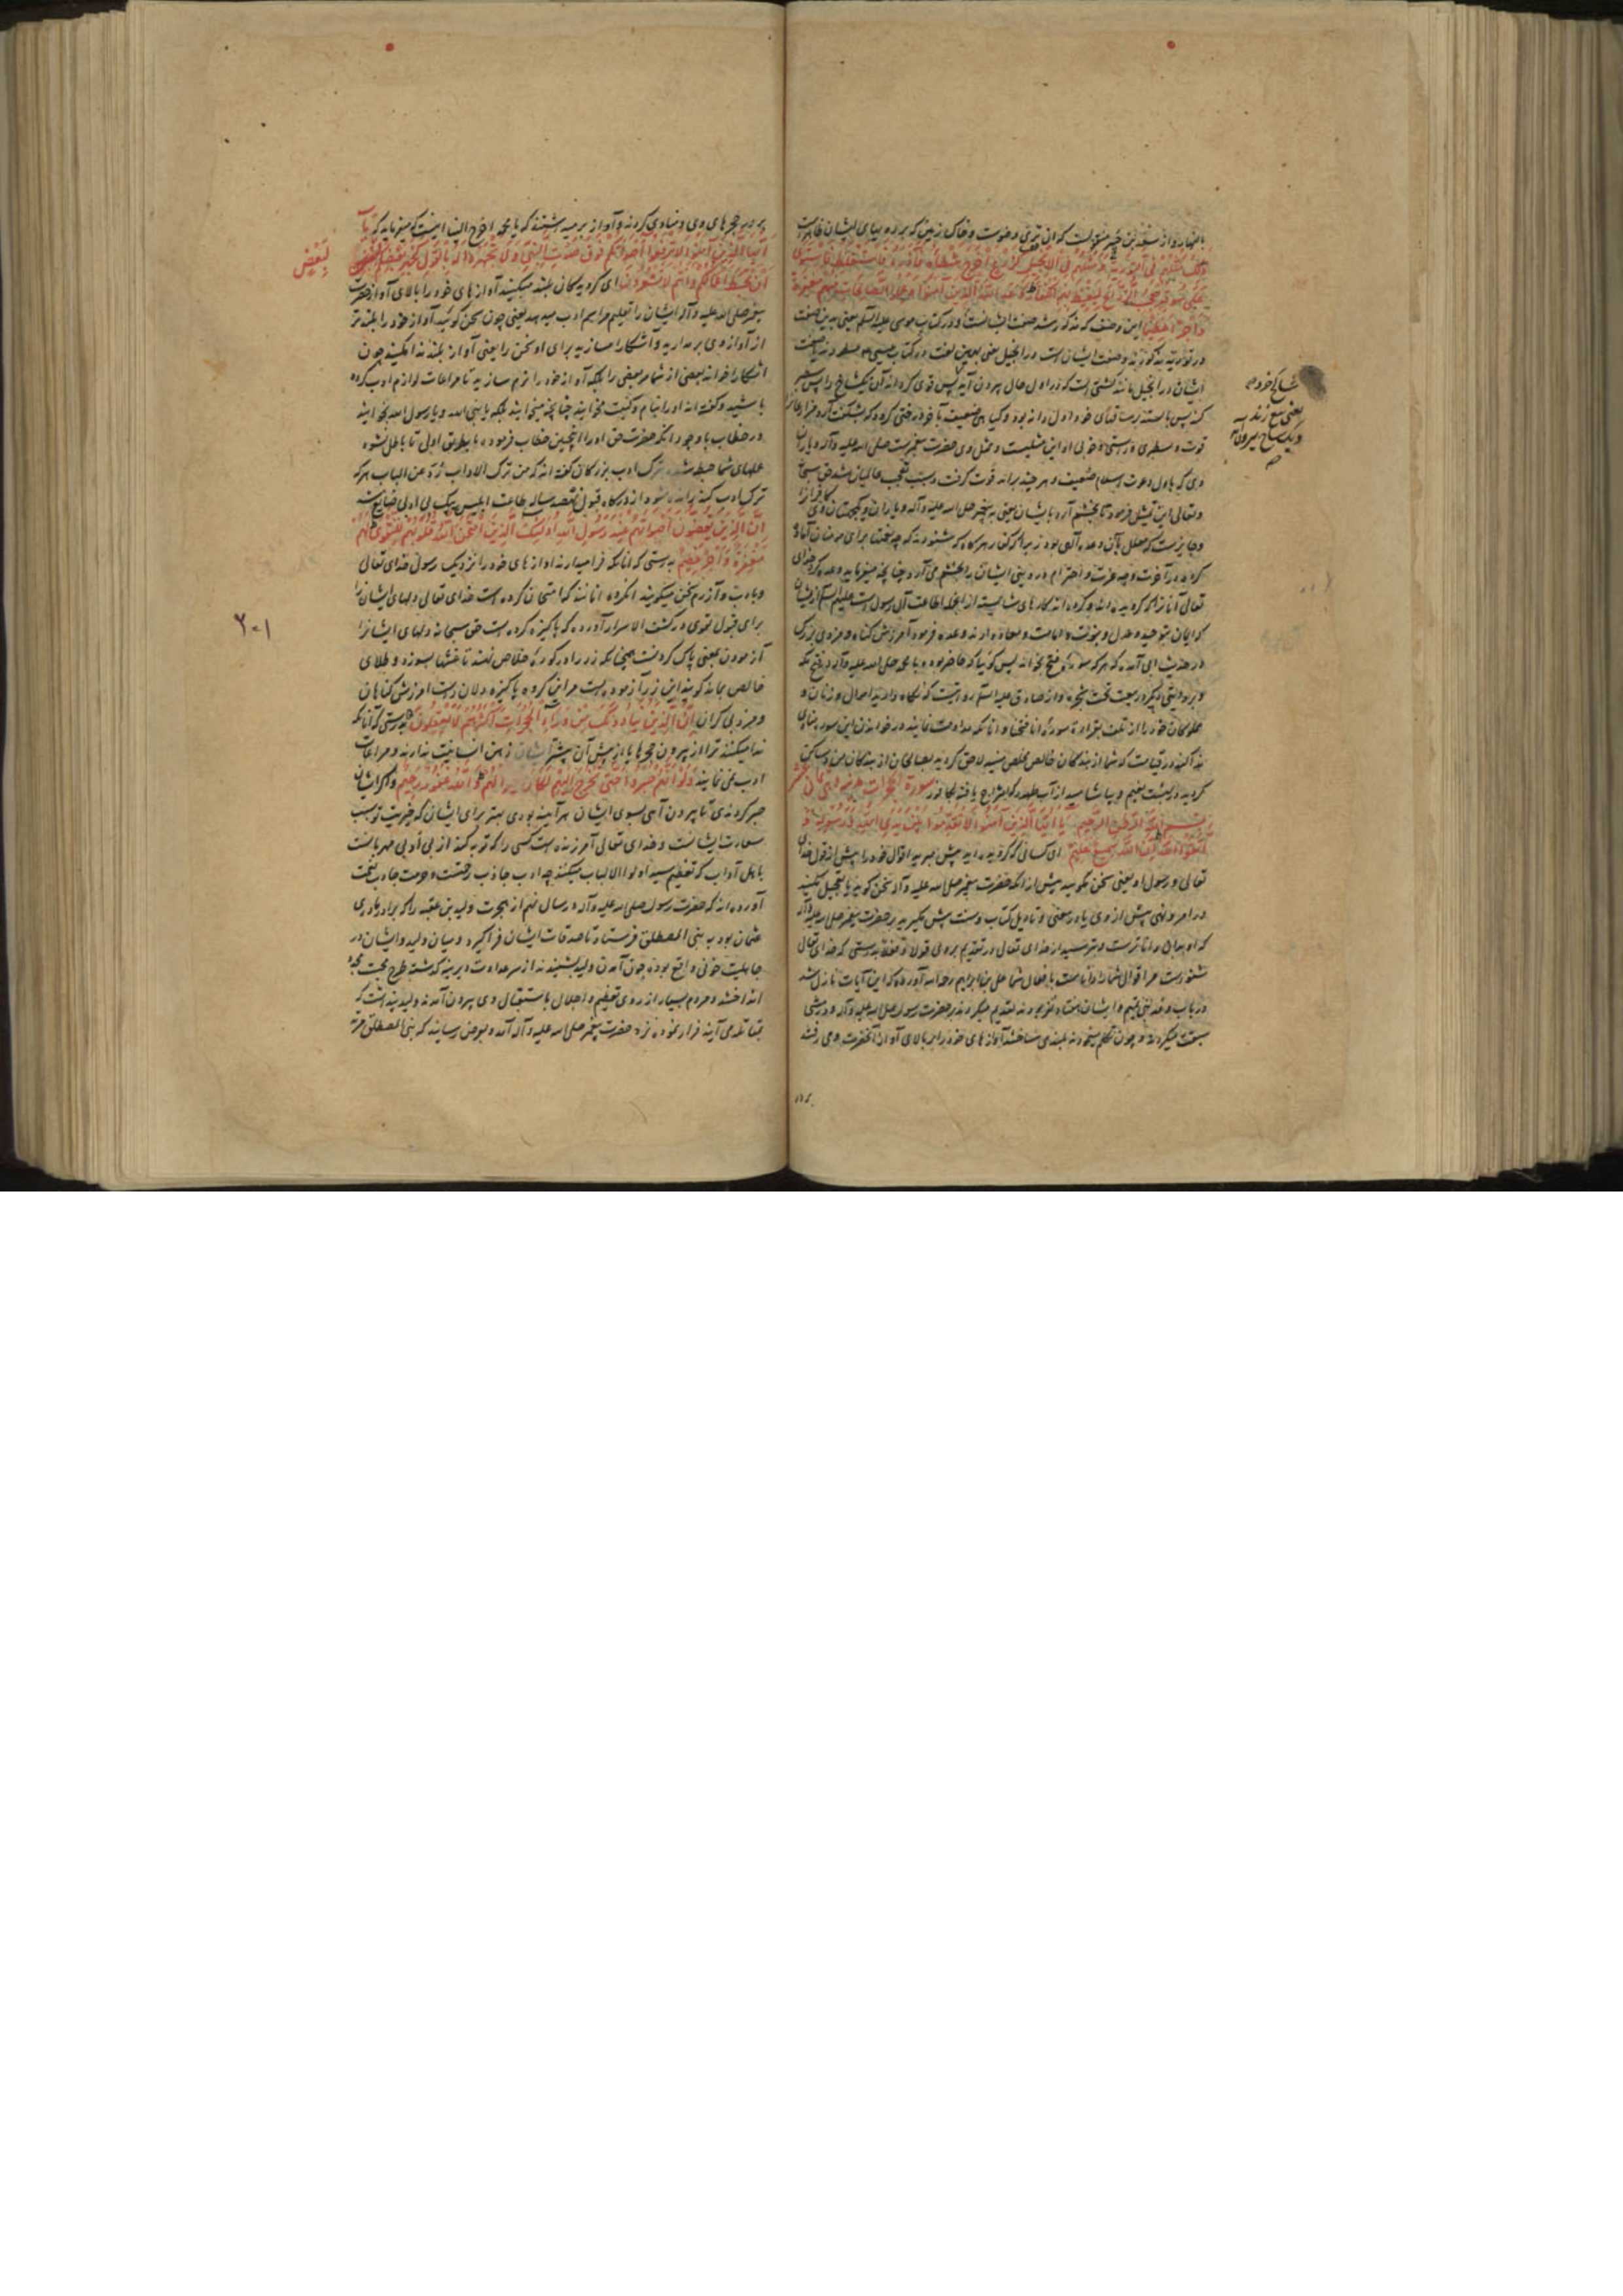 ذلک مثلهم فی التوریة و مثلهم فی الانجیل کزرع اخرج شطأه فآزره فاستغلظ فاستوی
علی سوقه یعجب الزراع لیغیظ بهم الکفار وعد الله الذین آمنوا و عملوا الصالحات منهم مغفرة
و اجرا عظیما این وصف که مذکور شد صفت ایشانست و در کتاب موسی علیه السلم یعنی بدین صفت
در توریة مذکورند و صفت ایشان است در انجیل یعنی بهمین نعت در کتاب عیسی
ایشان در انجیل مانند کشتی است که در اول حال بیرون آید پس قوی کرداند آن یکشاخ را پس سطبر
قوت و سطبری و درستی و خوبی او این مثلیست و مثل وی حضرت پیغمبرست صلی الله علیه و آله و یاران
وی که باول دعوت اسلام ضعیف و هر چند برآمد قوت کرفت و سبب تعجب عالمیان شد حق سبحانه
و تعالی این تمثیل فرمود تا بخشم آرد بایشان یعنی به پیغمبر صلی الله علیه و آله و یاران
تعالی آنانرا که کرویده اند و کرده اند کارهای شایسته
کرامیان بتوحید و عدل و نبوت و امامت و معاد دارند وعده فرمود آمرزش کناه و مزدی بزرک
در حدیث ابی آمده که هر که سوره فتح بخواند پس کوئیا که حاضر بوده با محمد صلی الله علیه و آله در فتح مکه
و بروایتی دیکر در بیعت تحت شجره و از صادق علیه السلم روایتست که نکاه دارید اموال و زنان و
مملوکان خود را از تلف بقراءة سوره انا فتحنا و آنانکه مداومت نمایند در خواندن این سوره منادی
ندا کند در قیامت که شما از بندکان خالص مخلص منید لاحق کردید بصالحان از بندکان من و ساکن
کردید در بهشت نعیم و بیاشامید از آب طهور که مزاج یافته بکافور سورة الحجرات
بسم الله الرحمن الرحیم یا ایها الذین آمنوا لا تقدموا بین یدی الله و رسوله و
اتقوا الله ان الله سمیع علیم ای کسانی که کرویده اید پیش مبرید اقوال خود را پیش از قول خدای
تعالی و رسول او یعنی سخن مکوئید پیش از آنکه حضرت پیغمبر صلی الله علیه و آله سخن کوید یا تعجیل مکنید
در امر و نهی پیش از وی یا در معنی و تاویل کتاب و سنت پیش مکیرید بر حضرت پیغمبر صلی الله علیه و آله
که او بدان داناترست و بترسید از خدای تعالی در تقدیم بر وی قولا و فعلا بدرستی که خدای تعالی
شنواست مر اقوال شما را داناست بافعال شما علی بن ابراهیم رحمه الله آورده که این آیات نازل شد
در باب وفد بنی تمیم و ایشان هفتاد نفر بودند تقدیم میکردند بر حضرت رسول صلی الله علیه و آله و در مشی
سبقت میکردند و چون تکلم مینمودند بلند می ساختند آوازهای خود را بر بالای آواز آنحضرت و می رفتند
شاخ خورد
یعنی سه فرزند
بر در حجرهای وی و منادی کردند و آواز بر میداشتند که یا محمد اخرج الینا اینست که میفرماید که یا
ایها الذین آمنوا لا ترفعوا اصواتکم فوق صوت النبی و لا تجهروا له بالقول کجهر بعضکم
لبعض
ان تحبط اعمالکم و انتم لا تشعرون ای کرویدکان بلند مکنید آوازهای خود را بالای آواز حضرت
پیغمبر صلی الله علیه و آله ایشان را تعلیم مراسم ادب میدهد یعنی چون سخن کوئید آواز خود را بلندتر
از آواز وی برمدارید و آشکارا مسازید برای او سخن را یعنی آواز بلند ندا مکنید چون
آشکارا خواندن بعضی از شما مر بعضی را بلکه آواز خود را نرم سازید تا مراعات لوازم ادب کرده
باشید و کفته اند او را بنام و کنیت مخوانید چنانچه میخوانید بلکه یا نبی الله و یا رسول الله بخوانید
در خطاب با وجود آنکه حضرت حق او را اینچنین خطاب فرموده ما بطریق اولی تا باطل نشود
عملهای شما حبط نشود ترک ادب بزرکان کفته اند که من ترک الآداب رد عن الباب هر که
ترک ادب کند رانده شود از درکاه قبول نهصد ساله طاعت ابلیس بیک بی ادبی ضایع شد
ان الذین یغضون اصواتهم عند رسول الله اولئک الذین امتحن الله قلوبهم للتقوی لهم
مغفرة و اجر عظیم بدرستی که آنانکه فرامیدارند آوازهای خود را نزدیک رسول خدای تعالی
و بادب و آزرم سخن میکویند آنکروه آنانند که امتحان کرده است خدای تعالی دلهای ایشانرا
برای قبول تقوی در کشف الاسرار آورده که پاکیزه کرده است حق سبحانه دلهای ایشانرا
آزمودن بمعنی پاک کردنست همچنانکه زر را در کوره خلاص نهند تا غشها بسوزد و طلای
خالص بماند کویند این زر آزموده است مر این کروه پاکیزه دلان راست آمرزش کناهان
و مزدی کران ان الذین ینادونک من وراء الحجرات اکثرهم لا یعقلون بدرستی که آنانکه
ندا میکنند ترا از بیرون حجرها یا از پیش آن بیشتر ایشان ذهن انسانیت ندارند و مراعات
ادب نمی نمایند و لو انهم صبروا حتی تخرج الیهم لکان خیرا لهم و الله غفور رحیم و اکر ایشان
صبر کردندی تا بیرون آمدی بسوی ایشان هر آینه بودی بهتر برای ایشان که خیریت تو سبب
سعادت ایشانست و خدای تعالی آمرزنده است کسی را که توبه کند از بی ادبی مهربانست
باهل آداب که تعظیم سید اولوا الالباب میکنند چه ادب جاذب رحمتست و حرمت جالب نعمت
آورده اند که حضرت رسول صلی الله علیه و آله در سال نهم از هجرت ولید بن عقبه را که برادر مادری
عثمان بود به بنی المصطلق فرستاد تا صدقات ایشان فراکیرد و میان ولید و ایشان در
جاهلیت خونی واقع بوده چون آمدن ولید بشنیدند از سر عداوت دیرینه کذشته طرح محبت
انداختند و مردم بسیار از روی تعظیم و اجلال باستقبال وی بیرون آمدند ولید پنداشت که
بمقاتله می آیند فرار نموده نزد حضرت پیغمبر صلی الله علیه و آله آمد و بعرض رسانید که بنی المصطلق مرتد
۲۰۱